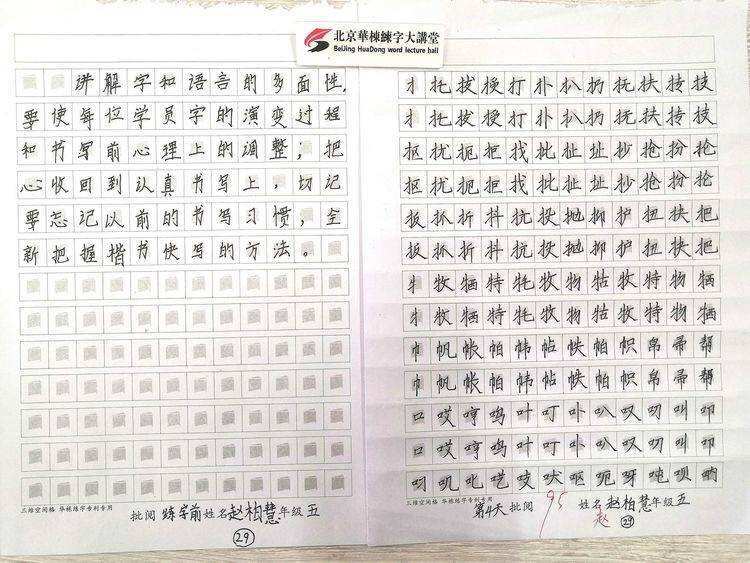 北京華棟練字大講堂
BeiJing HuaDong word lecture hall
讲解字和语言的多面性,
要使每位学员字的演变过程
和书写前心理上的调整；把
心收回到认真书写上，切记
要忘记以前的书写习惯，全
新把握楷书快写的方法。
三维空间格 华栋练字专利专用
批阅 练字前 姓名 赵柏慧 年级 五
29
扌托拔授打扑扒扔抚扶抟技
扌托拔授打扑扒扔抚扶抟技
抠扰扼拒找批扯址抄抢扮抡
抠扰扼拒找批扯址抄抢扮抡
扳抓折抖抗抉抛抑护扭扶把
扳抓折抖抗抉抛抑护扭扶把
牜牧牺特牦牧物牯牧特物牺
牜牧牺特牦牧物牯牧特物牺
巾帆帐帕帏帖帙帕帜帛帚帮
巾帆帐帕帏帖帙帕帜帛帚帮
口哎哼鸣叶叮卟叭叹叨叫叩
口哎哼鸣叶叮卟叭叹叨叫叩
叽吆吱吠呕呃呀吨呗呐
三维空间格 华栋练字专利专用
第4天 批阅 95 姓名 赵柏慧 年级 五
赵
29